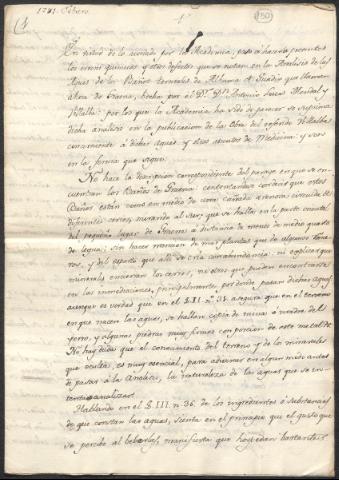 1791. Febrero
(1
150
En virtud de lo acordado por la Academia, paso à hacerla presentes
los errores quimicos y otros defectos que se notan en la Analisis de las
Aguas de los Baños termales de Alhama de Guadix que llaman
ahora de Graena, hecha por el Dr. Dn. Antonio Josef Montal y
Villalba: por los que la Academia ha sido de parecer se suprima
dicha analisis en la publicacion de la Obra del referido Villalba
concerniente à dichas Aguas, y otros asuntos de Medicina: y son
en la forma que sigue.
No hace la descripcion correspondiente del parage en que se en-
cuentran los Baños de Graena: contentandose con decir que estos
Baños están como en medio de una cañada arenosa circuida de
diferentes cerros, mirando al sur, que se hallan en la parte oriental
del pequeño lugar de Graena à distancia de menos de medio quarto
de legua: sin hacer mencion de mas plantas que de algunos Toma-
res, y del esparto que allí se cria con abundancia; ni explicar que
minerales encierran los cerros, ni otros que pueden encontrarse
en las inmediaciones, principalmente por donde pasan dichas aguas,
aunque es verdad que en el §. II. nº. 31. asegura que en el terreno
en que nacen las aguas, se hallan copia de minas ò madre del
fierro, y algunas piedras muy firmes con porcion de este metal &c.
No hay duda que el conocimiento del terreno y de los minerales
que oculta, es muy esencial, para aclararnos en algun modo antes
de pasar à la Analisis, la naturaleza de las aguas que se in-
tenta analizar.
Hablando en el §. III. n. 36. de los ingredientes ò substancias
de que constan las aguas, sienta en el principio que el gusto que
se percibe al beberlas, manifiesta que hospedan bastantes